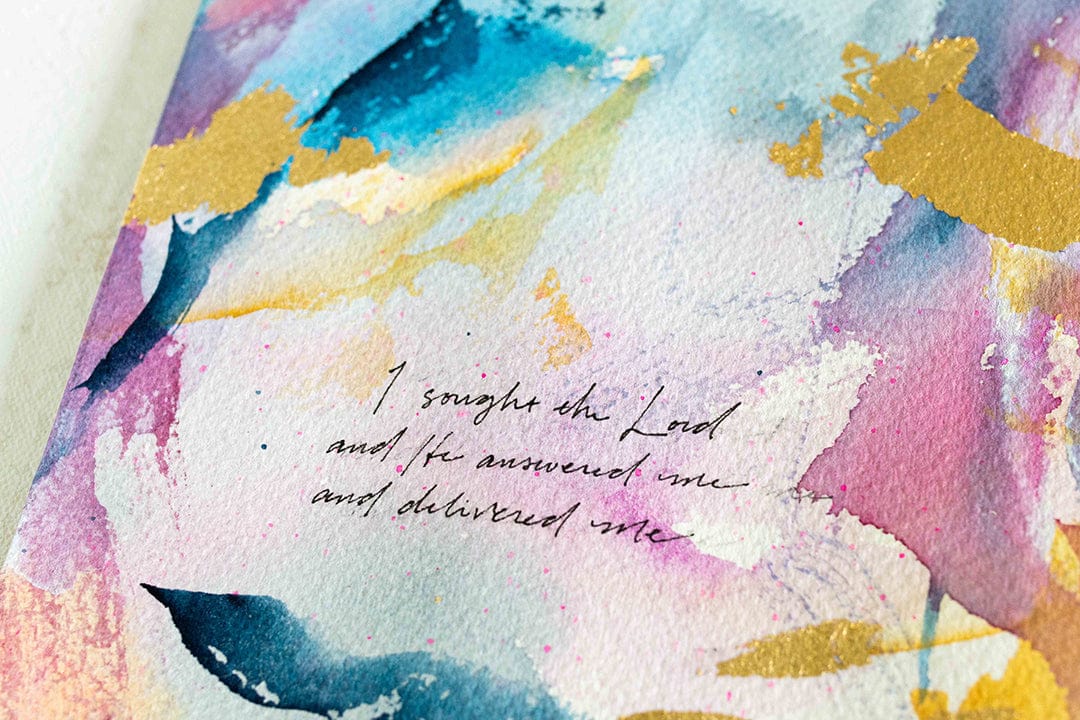 I sought the Lord
and He answered me
and delivered me